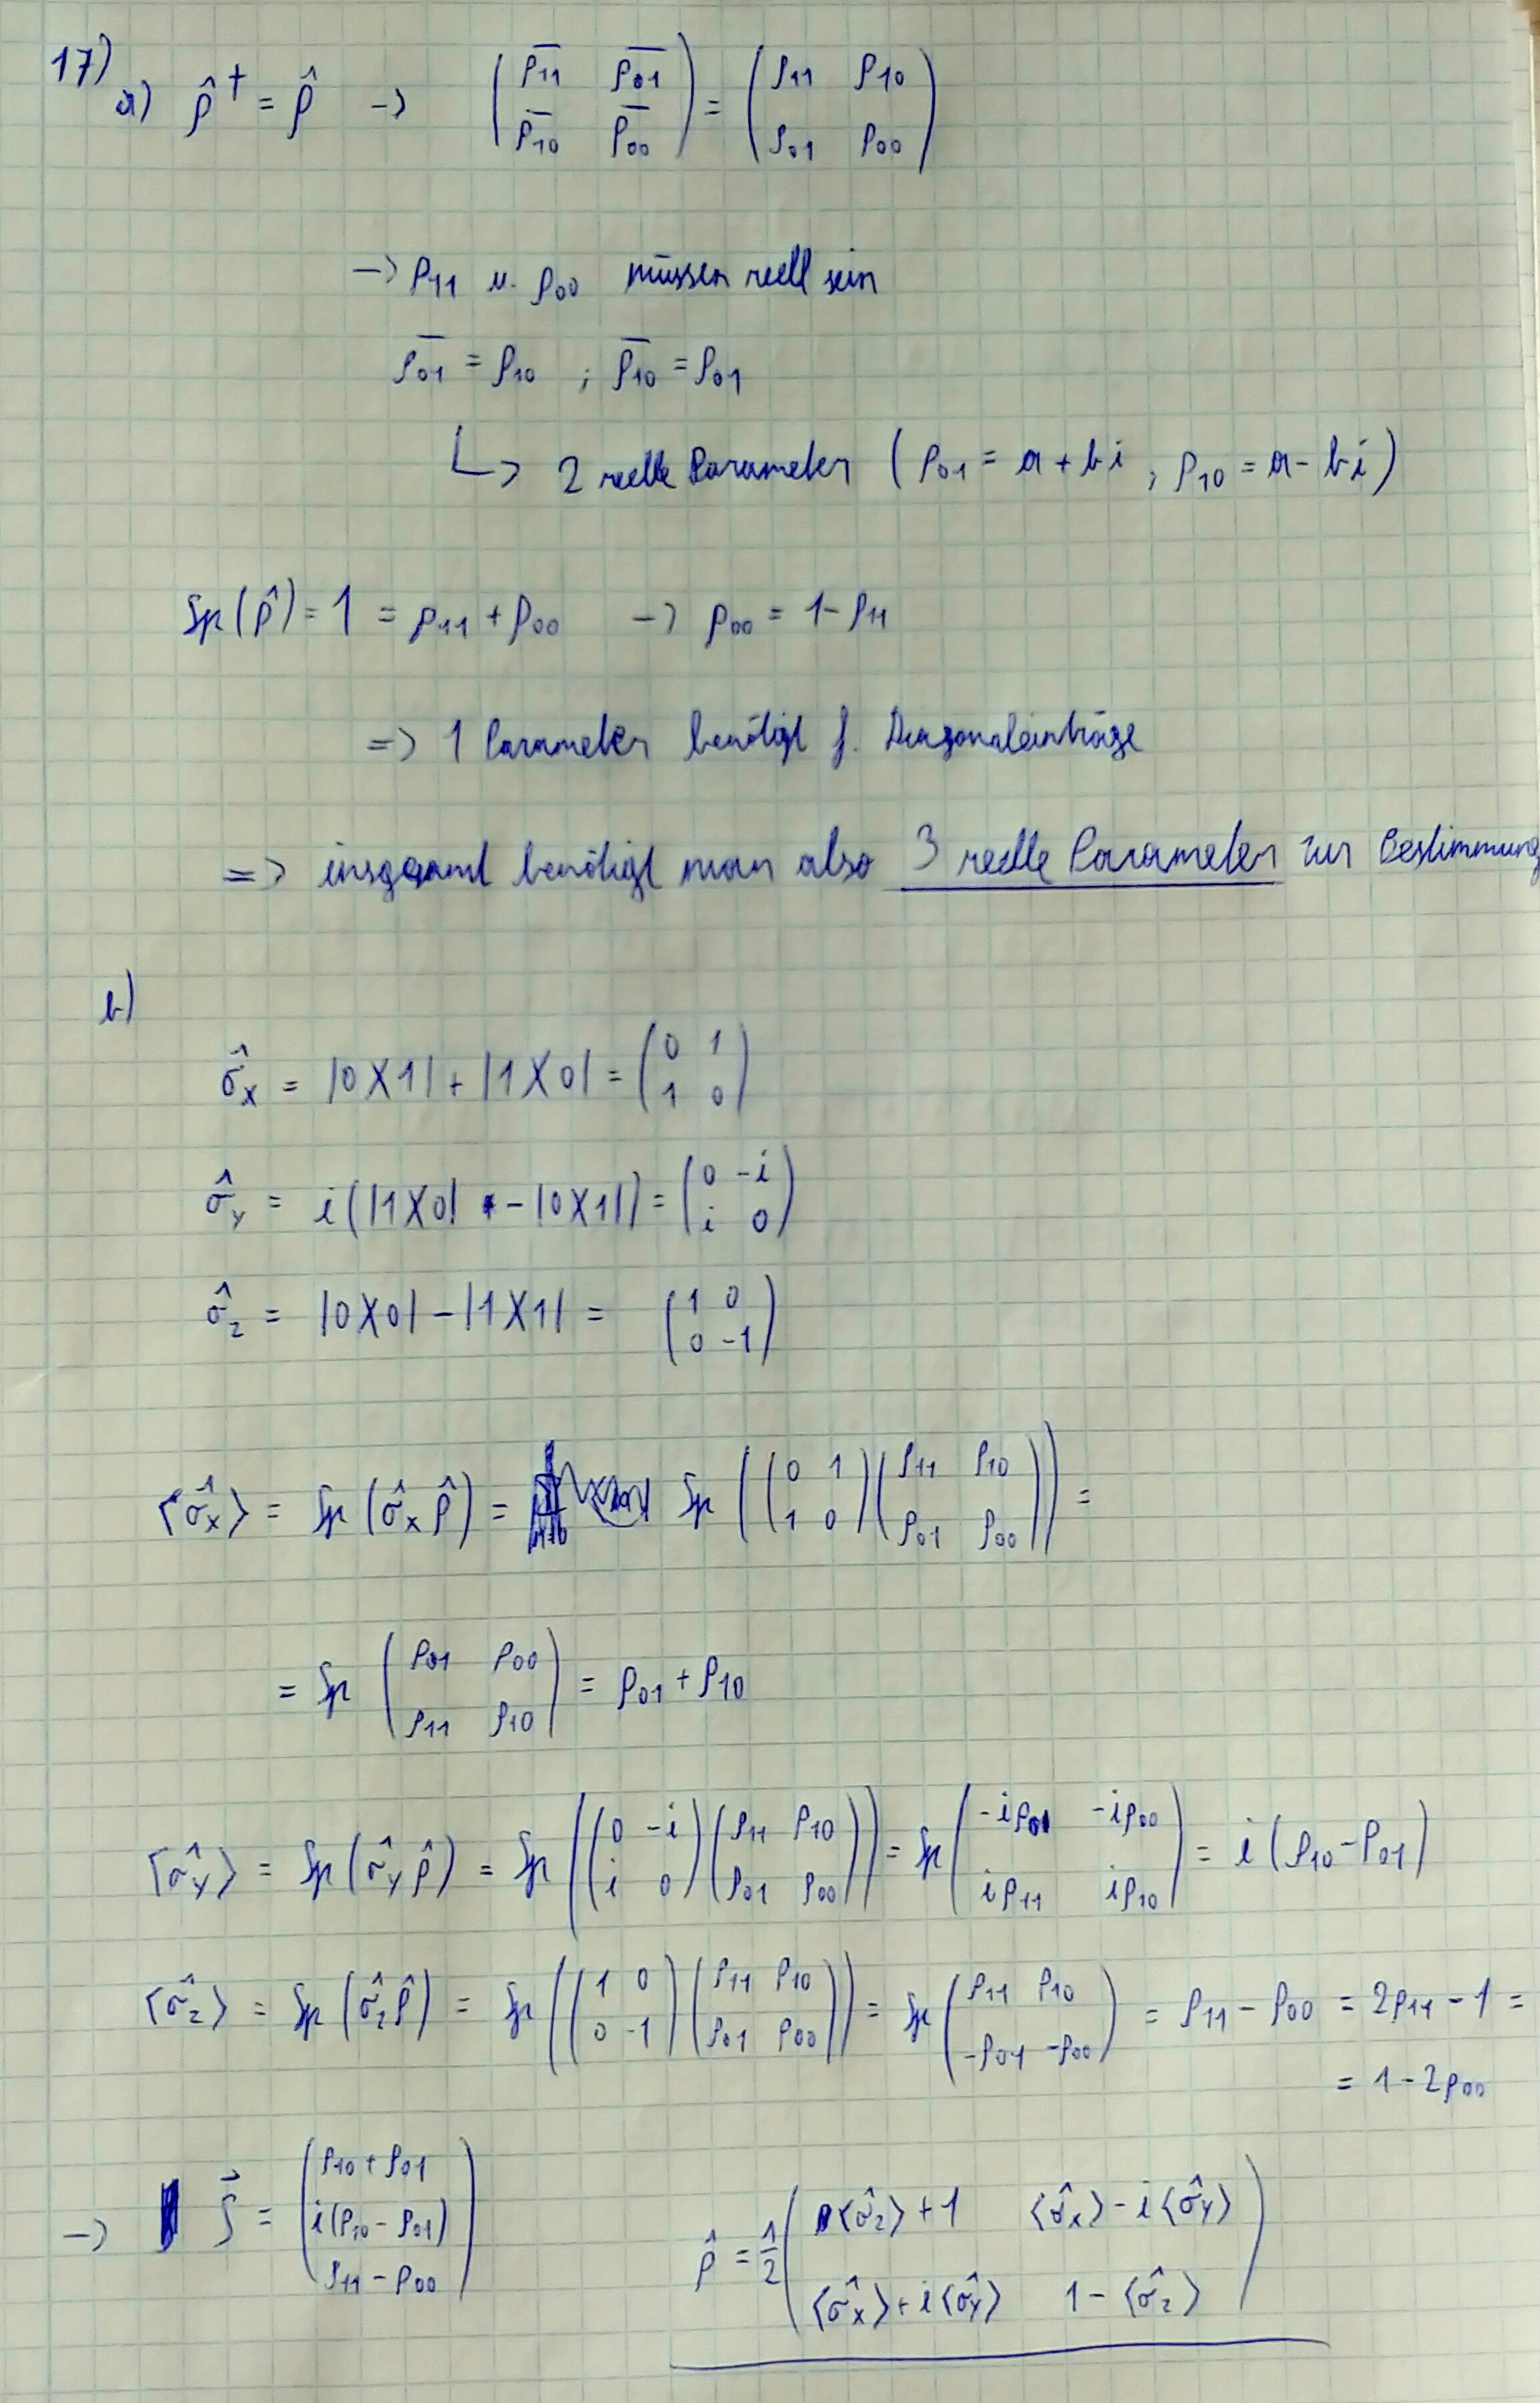 17)
a) ρ̂† = ρ̂ -> ( ρ̅11 ρ̅01 ; ρ̅10 ρ̅00 ) = ( ρ11 ρ10 ; ρ01 ρ00 )
-> ρ11 u. ρ00 müssen reell sein
ρ̅01 = ρ10 ; ρ̅10 = ρ01
↳ 2 reelle Parameter ( ρ01 = a + bi , ρ10 = a - bi )
Sp(ρ̂) = 1 = ρ11 + ρ00 -> ρ00 = 1 - ρ11
=> 1 Parameter benötigt f. Diagonaleinträge
=> insgesamt benötigt man also 3 reelle Parameter zur Bestimmung
b)
σ̂x = |0X1| + |1X0| = ( 0 1 ; 1 0 )
σ̂y = i(|1X0| - |0X1|) = ( 0 -i ; i 0 )
σ̂z = |0X0| - |1X1| = ( 1 0 ; 0 -1 )
⟨σ̂x⟩ = Sp(σ̂x ρ̂) = Sp( ( 0 1 ; 1 0 ) ( ρ11 ρ10 ; ρ01 ρ00 ) ) =
= Sp ( ρ01 ρ00 ; ρ11 ρ10 ) = ρ01 + ρ10
⟨σ̂y⟩ = Sp(σ̂y ρ̂) = Sp( ( 0 -i ; i 0 ) ( ρ11 ρ10 ; ρ01 ρ00 ) ) = Sp ( -iρ01 -iρ00 ; iρ11 iρ10 ) = i(ρ10 - ρ01)
⟨σ̂z⟩ = Sp(σ̂z ρ̂) = Sp( ( 1 0 ; 0 -1 ) ( ρ11 ρ10 ; ρ01 ρ00 ) ) = Sp ( ρ11 ρ10 ; -ρ01 -ρ00 ) = ρ11 - ρ00 = 2ρ11 - 1 =
= 1 - 2ρ00
-> ζ⃗ = ( ρ10 + ρ01 ; i(ρ10 - ρ01) ; ρ11 - ρ00 )
ρ̂ = 1/2 ( ⟨σ̂z⟩ + 1 ⟨σ̂x⟩ - i⟨σ̂y⟩ ; ⟨σ̂x⟩ + i⟨σ̂y⟩ 1 - ⟨σ̂z⟩ )